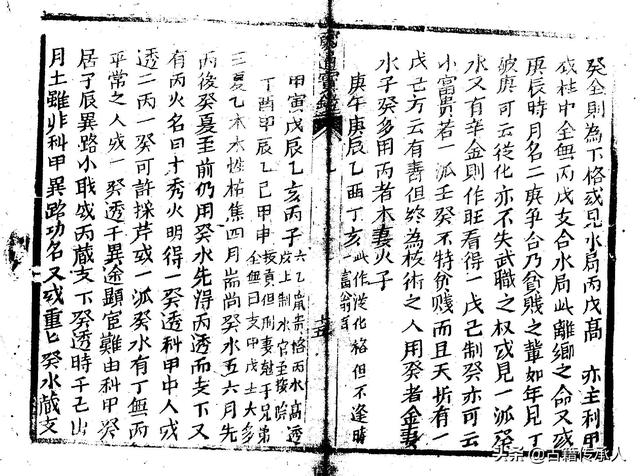 癸全則為下格或見水局丙戊高　亦主利甲
或柱中全無丙戊支合水局此離鄉之命又或
庚辰時月名二庚争合乃貧賤之輩如年見丁
破庚可云從化亦不失武職之权或見一派癸
水又有辛金則作旺看得一戊己制癸亦可云
小富貴若一派壬癸不特貧贱而且夭折有一
戊己方云有壽但终為術之人用癸者金妻
水子癸多用丙者木妻火子
庚午庚辰乙酉丁亥 此作從化格但不逢時一富翁耳
甲寅戊辰乙亥丙子 六乙鼠贵格丙水高透
丁酉甲辰乙己甲申
三夏乙木木性枯焦四月耑尚癸水五六月先
丙後癸夏至前仍用癸水先得丙透而支下又
有丙火名曰才秀火明得一癸透科甲中人或
透二丙一癸可許採芹或一派癸水有丁無丙
平常之人或一癸透千異途顯宦難由科甲癸
居子辰異路小耺或丙藏支下癸透時千己出
月土雖非科甲異路功名又或重匕癸水藏支
十五
头条@古籍传承人